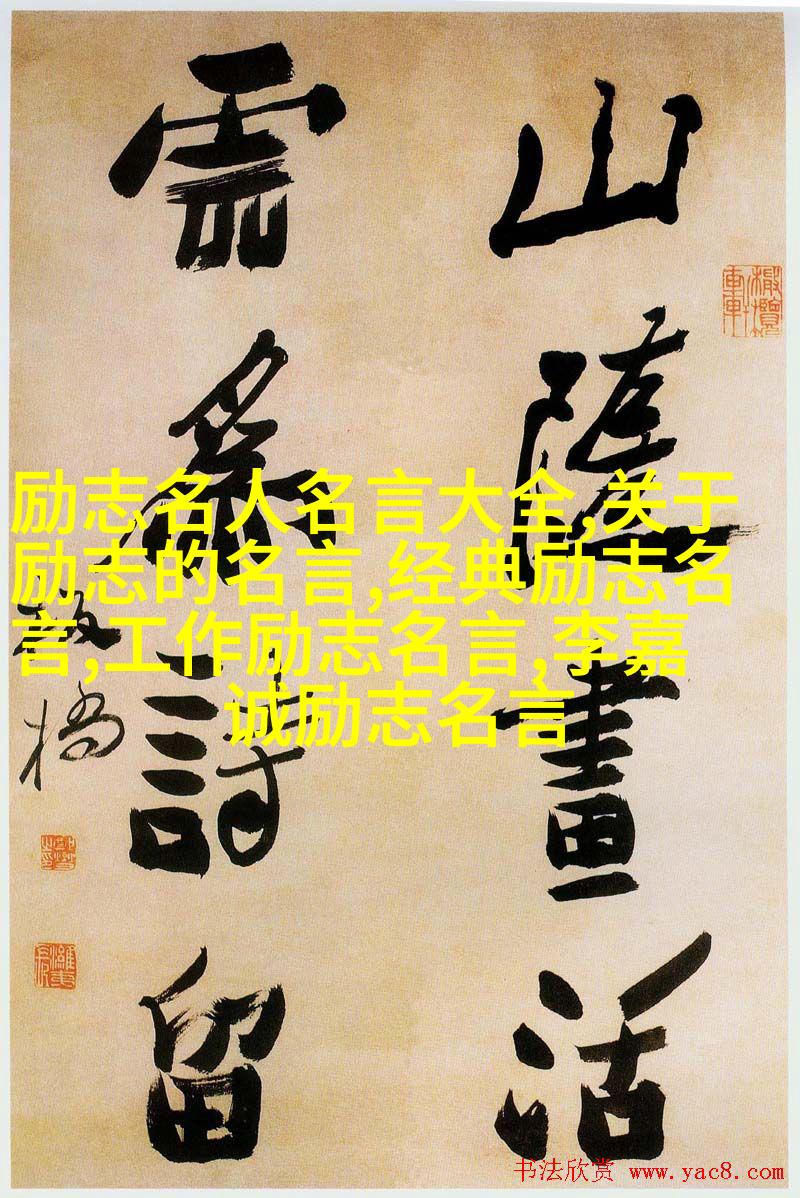 山隨畫活
雲爲詩留
板橋
励志名人名言大全,关于
励志的名言,经典励志名
言,工作励志名言,李嘉
诚励志名言
书法欣赏 www.yac8.com